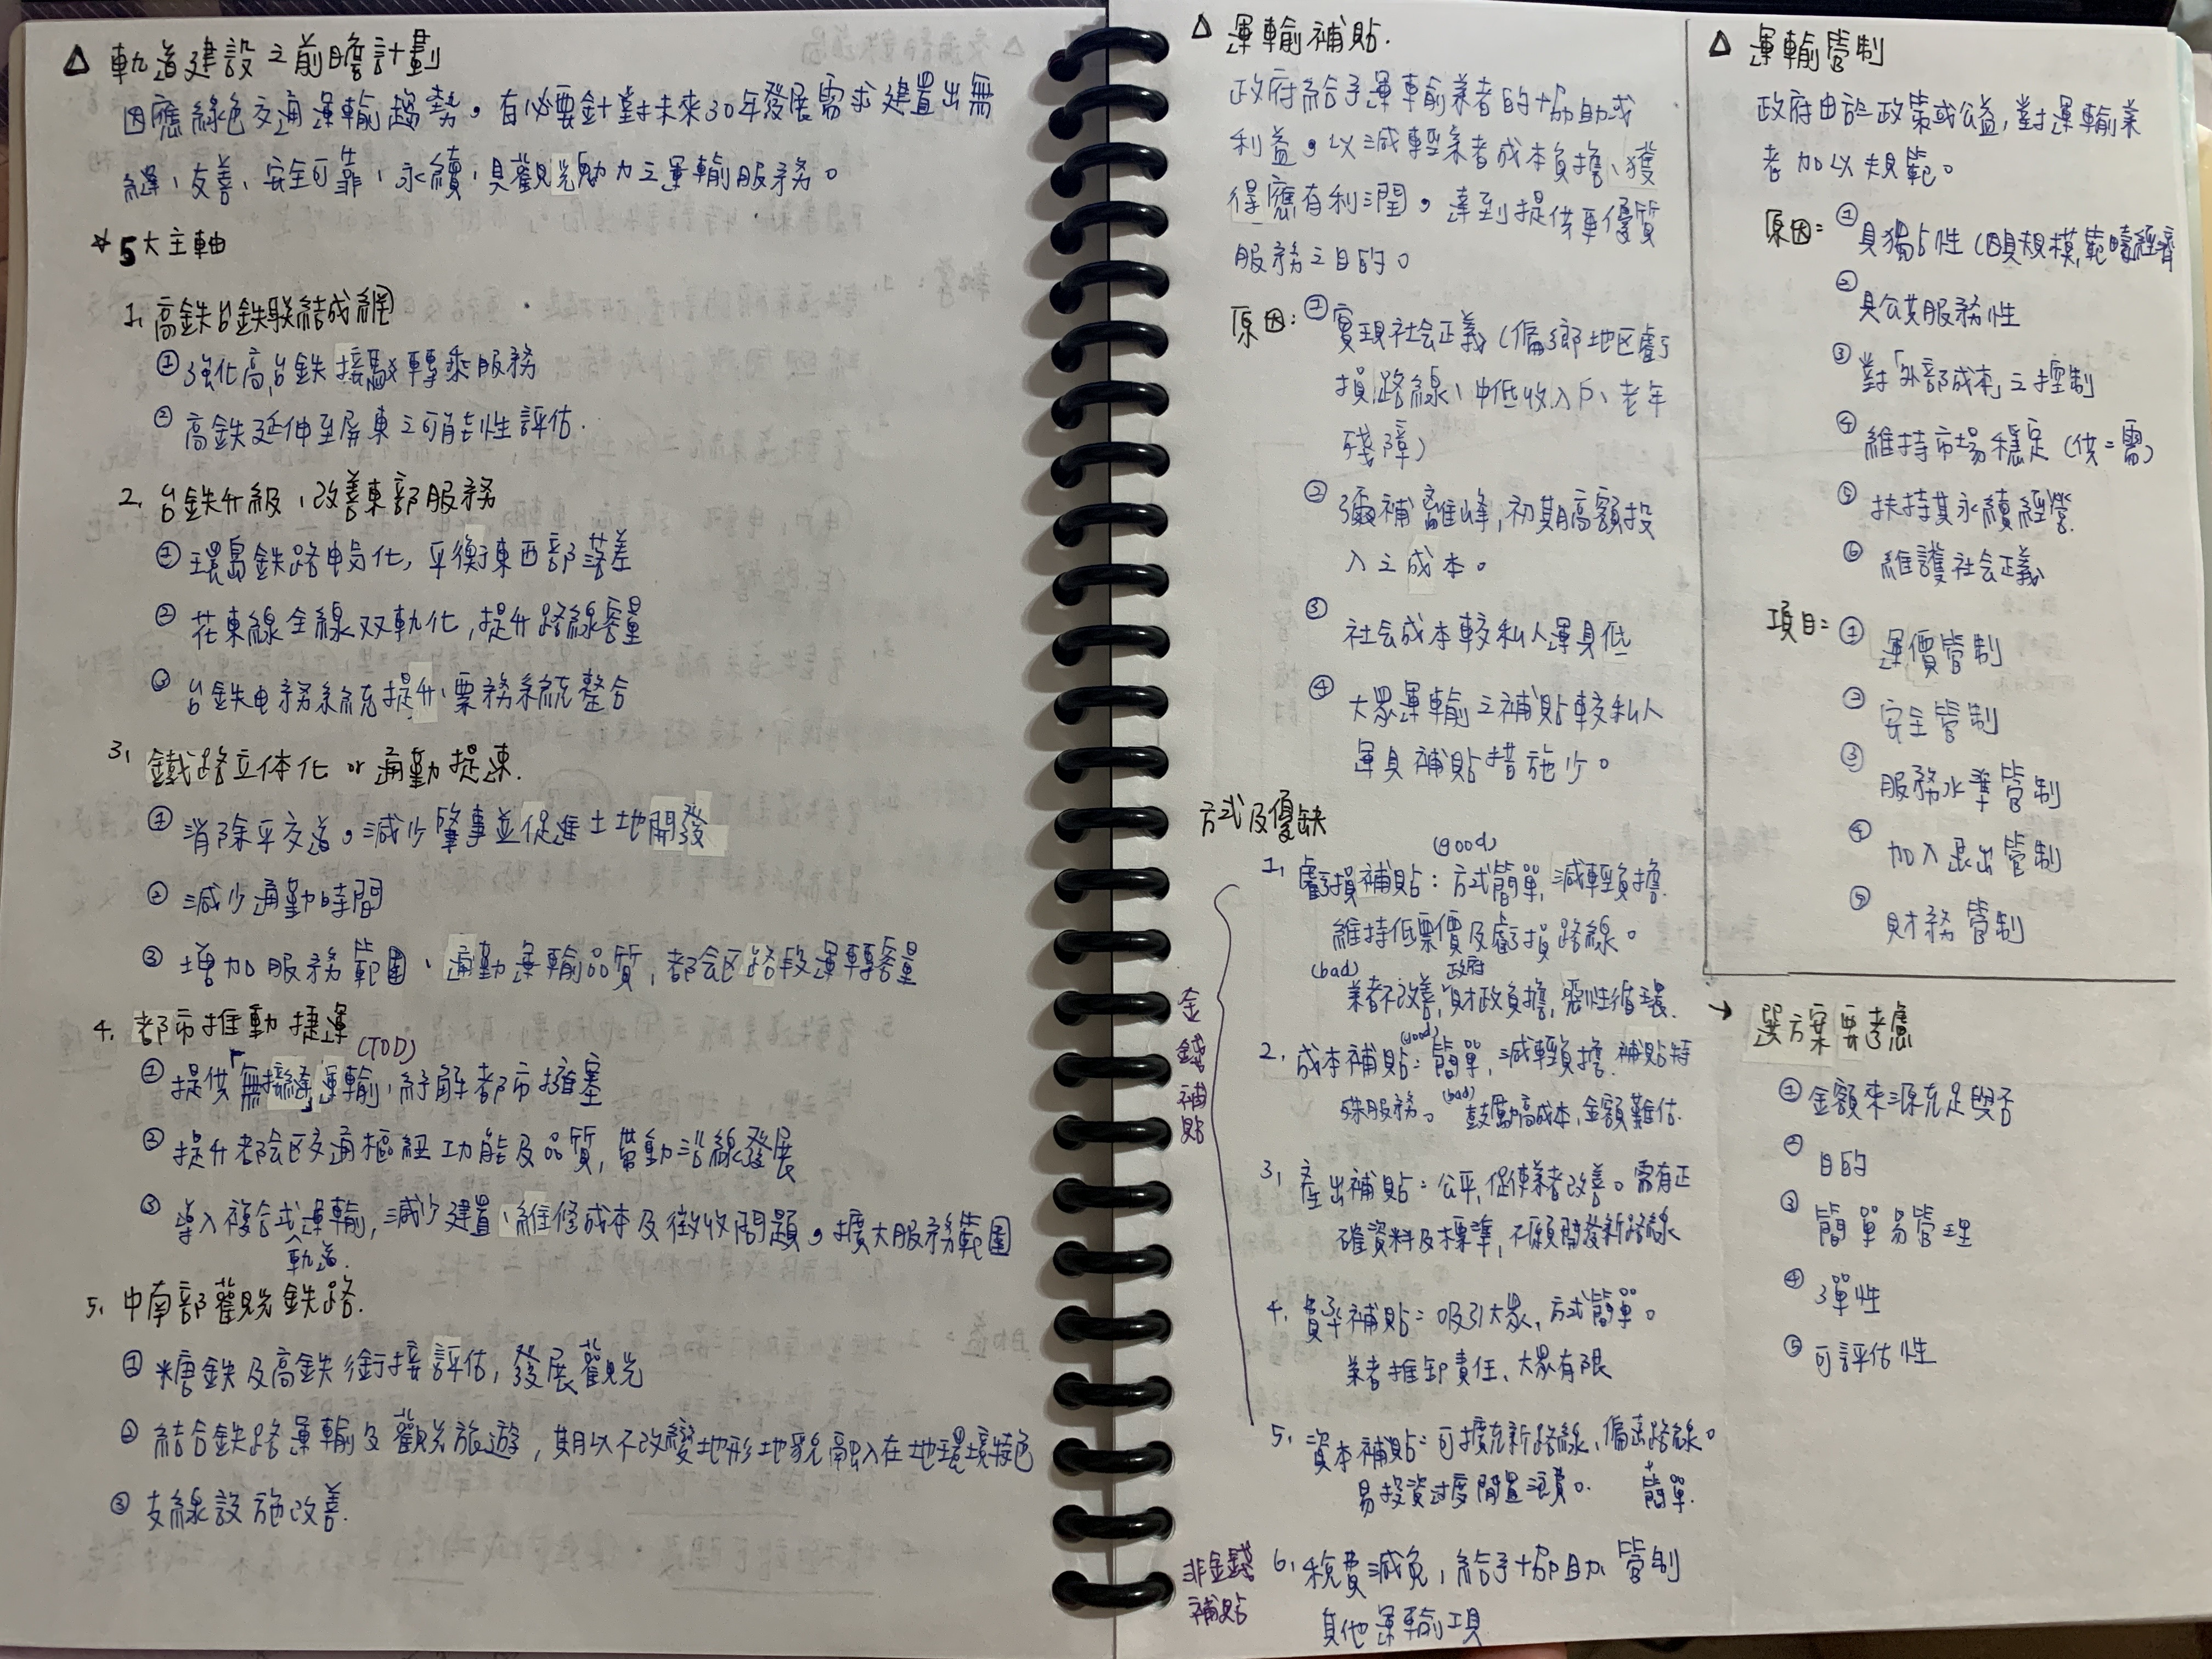 △ 軌道建設之前瞻計劃
因應綠色交通運輸趨勢。有必要針對未來30年發展需求建置出無
縫、友善、安全可靠、永續、具觀光動力之運輸服務。
☆5大主軸
1. 高鉄台鉄联結成網
① 強化高,台鉄接駁轉乘服務
② 高鉄延伸至屏東之可能性評估.
2. 台鉄升級、改善東部服務
① 環島鉄路电气化, 平衡東西部落差
② 花東線全線双軌化, 提升路線容量
③ 台鉄电務系統提升、票務系統整合
3. 鐵路立体化 or 通勤提速.
① 消除平交道。減少肇事並促進土地開發
② 減少通勤時間
③ 增加服務範圍、通勤運輸品質, 都会区路段運轉容量
4. 都市推動捷運
(TOD)
① 提供「無接縫」運輸, 紓解都市擁塞
② 提升都会区交通樞紐功能及品質, 帶動沿線發展
③ 導入複合式運輸, 減少建置、維修成本及徵收問題。擴大服務範圍
軌道.
5. 中南部觀光鉄路.
① 糖鉄及高鉄銜接評估, 發展觀光
② 結合鉄路運輸及觀光旅遊, 期以不改變地形地貌融入在地環境特色
③ 支線設施改善.
△ 運輸補貼.
政府給予運輸業者的協助或
利益。以減輕業者成本負擔、獲
得應有利潤。達到提供更優質
服務之目的。
原因: ① 實現社会正義(偏鄉地区虧
損路線、中低收入戶、老年
殘障)
② 彌補離峰, 初期高額投
入之成本。
③ 社会成本較私人運具低
④ 大眾運輸之補貼較私人
運具補貼措施少。
方式及優缺
(good)
1. 虧損補貼: 方式簡單, 減輕負擔.
維持低票價及虧損路線。
(bad) 政府
業者不改善, 財政負擔, 惡性循環.
(good)
2. 成本補貼: 簡單, 減輕負擔. 補貼特
殊服務。(bad) 鼓勵高成本, 金額難估.
3. 產出補貼: 公平, 促使業者改善。需有正
確資料及標準, 不願開發新路線
4. 費率補貼: 吸引大眾, 方式簡單。
業者推卸責任、大眾有限
5. 資本補貼: 可擴充新路線、偏遠路線。
易投資過度閒置浪費。 簡單.
金錢補貼
非金錢
補貼
6. 稅費減免, 給予協助. 管制
其他運輸工具
△ 運輸管制
政府由於政策或公益, 對運輸業
者加以規範。
原因: ① 具獨占性 (因具規模, 範疇經濟
② 具公共服務性
③ 對「外部成本」之控制
④ 維持市場穩定 (供=需)
⑤ 扶持其永續經營.
⑥ 維護社会正義
項目: ① 運價管制
② 安全管制
③ 服務水準管制
④ 加入退出管制
⑤ 財務管制
→ 選方案要考慮
① 金額來源充足與否
② 目的
③ 簡單易管理
④ 彈性
⑤ 可評估性